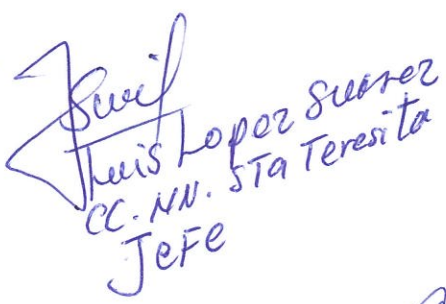 Luis Lopez Suarez
CC. NN. STa Teresita
JeFe